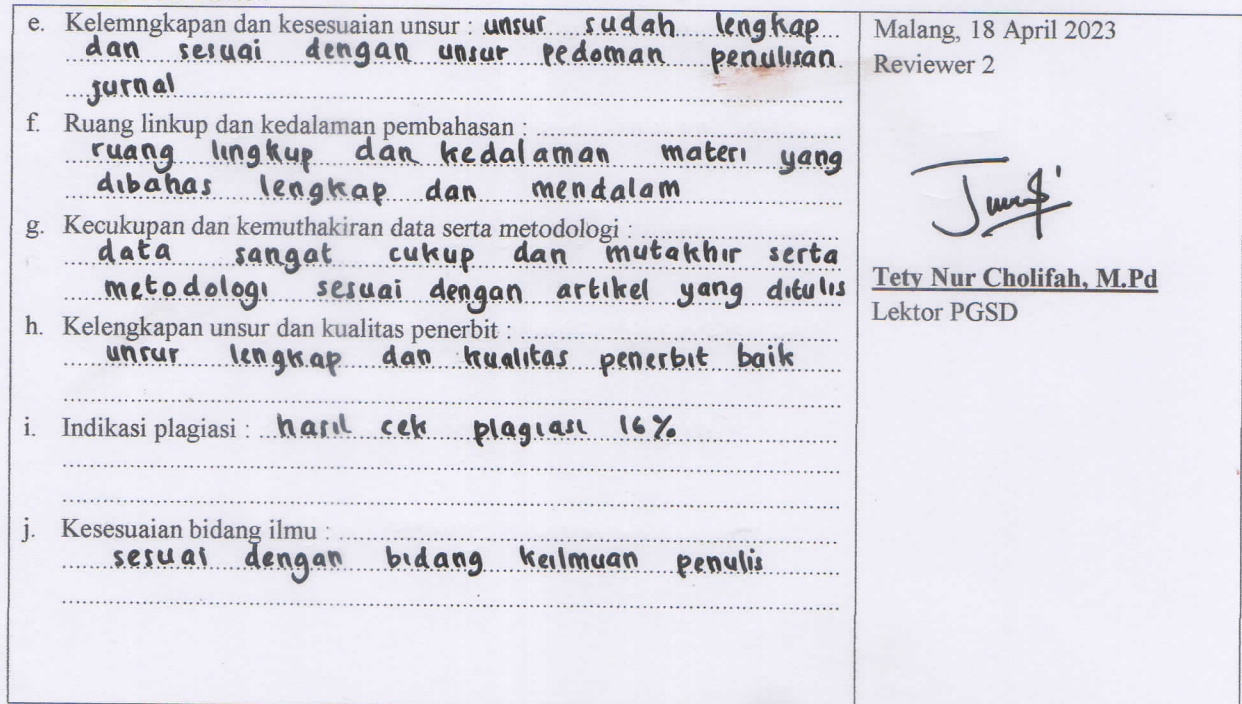 e. Kelemngkapan dan kesesuaian unsur : unsur sudah lengkap
dan sesuai dengan unsur pedoman penulisan
jurnal
f. Ruang linkup dan kedalaman pembahasan :
ruang lingkup dan kedalaman materi yang
dibahas lengkap dan mendalam
g. Kecukupan dan kemuthakiran data serta metodologi :
data sangat cukup dan mutakhir serta
metodologi sesuai dengan artikel yang ditulis
h. Kelengkapan unsur dan kualitas penerbit :
unsur lengkap dan kualitas penerbit baik
i. Indikasi plagiasi : hasil cek plagiasi 16%
j. Kesesuaian bidang ilmu :
sesuai dengan bidang keilmuan penulis
Malang, 18 April 2023
Reviewer 2
Tety Nur Cholifah, M.Pd
Lektor PGSD